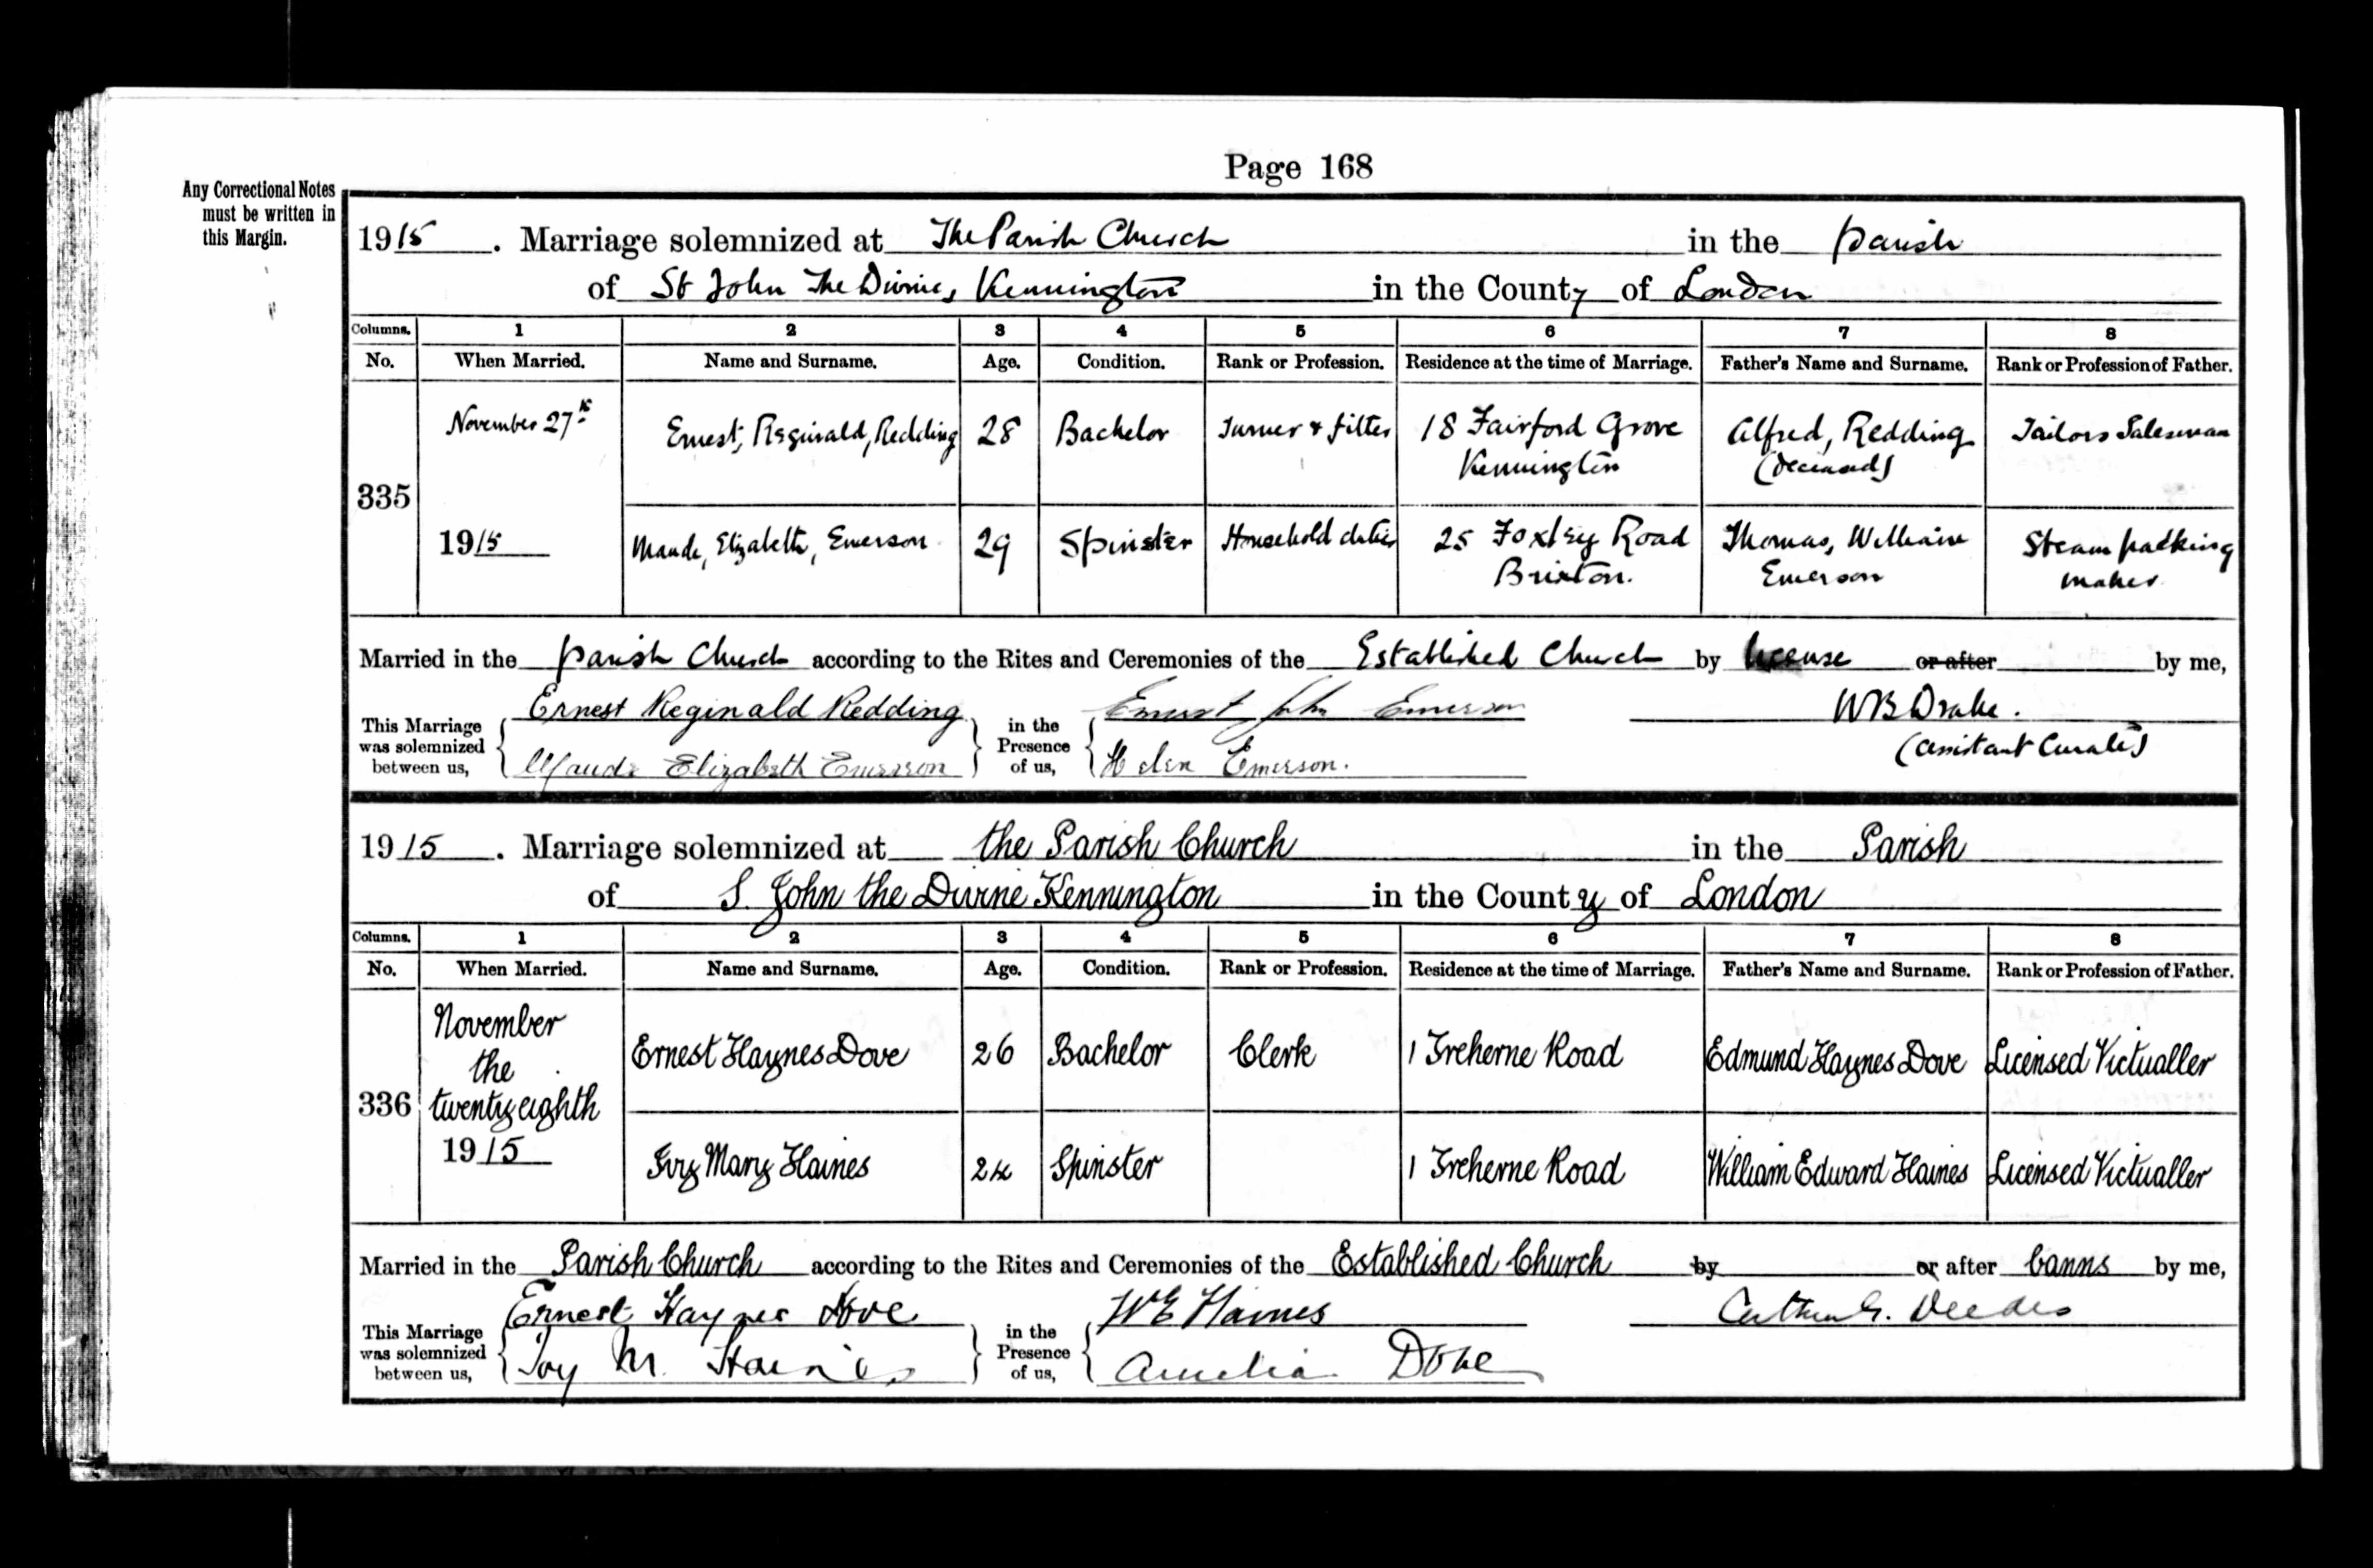 Page 168
Any Correctional Notes
must be written in
this Margin.
1915. Marriage solemnized at The Parish Church in the parish
of St John The Divine, Kennington in the County of London
Columns. 1 2 3 4 5 6 7 8
No. When Married. Name and Surname. Age. Condition. Rank or Profession. Residence at the time of Marriage. Father's Name and Surname. Rank or Profession of Father.
335
November 27th
1915
Ernest, Reginald, Redding 28 Bachelor Turner & fitter 18 Fairford Grove
Kennington
Alfred, Redding
(deceased)
Tailors Salesman
Maude, Elizabeth, Emerson 29 Spinster Household duties 25 Foxley Road
Brixton.
Thomas, William
Emerson
Steam packing
maker
Married in the parish Church according to the Rites and Ceremonies of the Established Church by license or after by me,
This Marriage
was solemnized
between us,
Ernest Reginald Redding
Maude Elizabeth Emerson
in the
Presence
of us,
Ernest John Emerson
Helen Emerson.
W B Drake.
(assistant Curate)
1915. Marriage solemnized at the Parish Church in the Parish
of S. John the Divine Kennington in the County of London
Columns. 1 2 3 4 5 6 7 8
No. When Married. Name and Surname. Age. Condition. Rank or Profession. Residence at the time of Marriage. Father's Name and Surname. Rank or Profession of Father.
336
November
the
twenty eighth
1915
Ernest Haynes Dove 26 Bachelor Clerk 1 Treherne Road Edmund Haynes Dove Licensed Victualler
Ivy Mary Haines 24 Spinster 1 Treherne Road William Edward Haines Licensed Victualler
Married in the Parish Church according to the Rites and Ceremonies of the Established Church by or after banns by me,
This Marriage
was solemnized
between us,
Ernest Haynes Dove
Ivy M. Haines
in the
Presence
of us,
W E Haines
Amelia Dove
Arthur G. Deedes